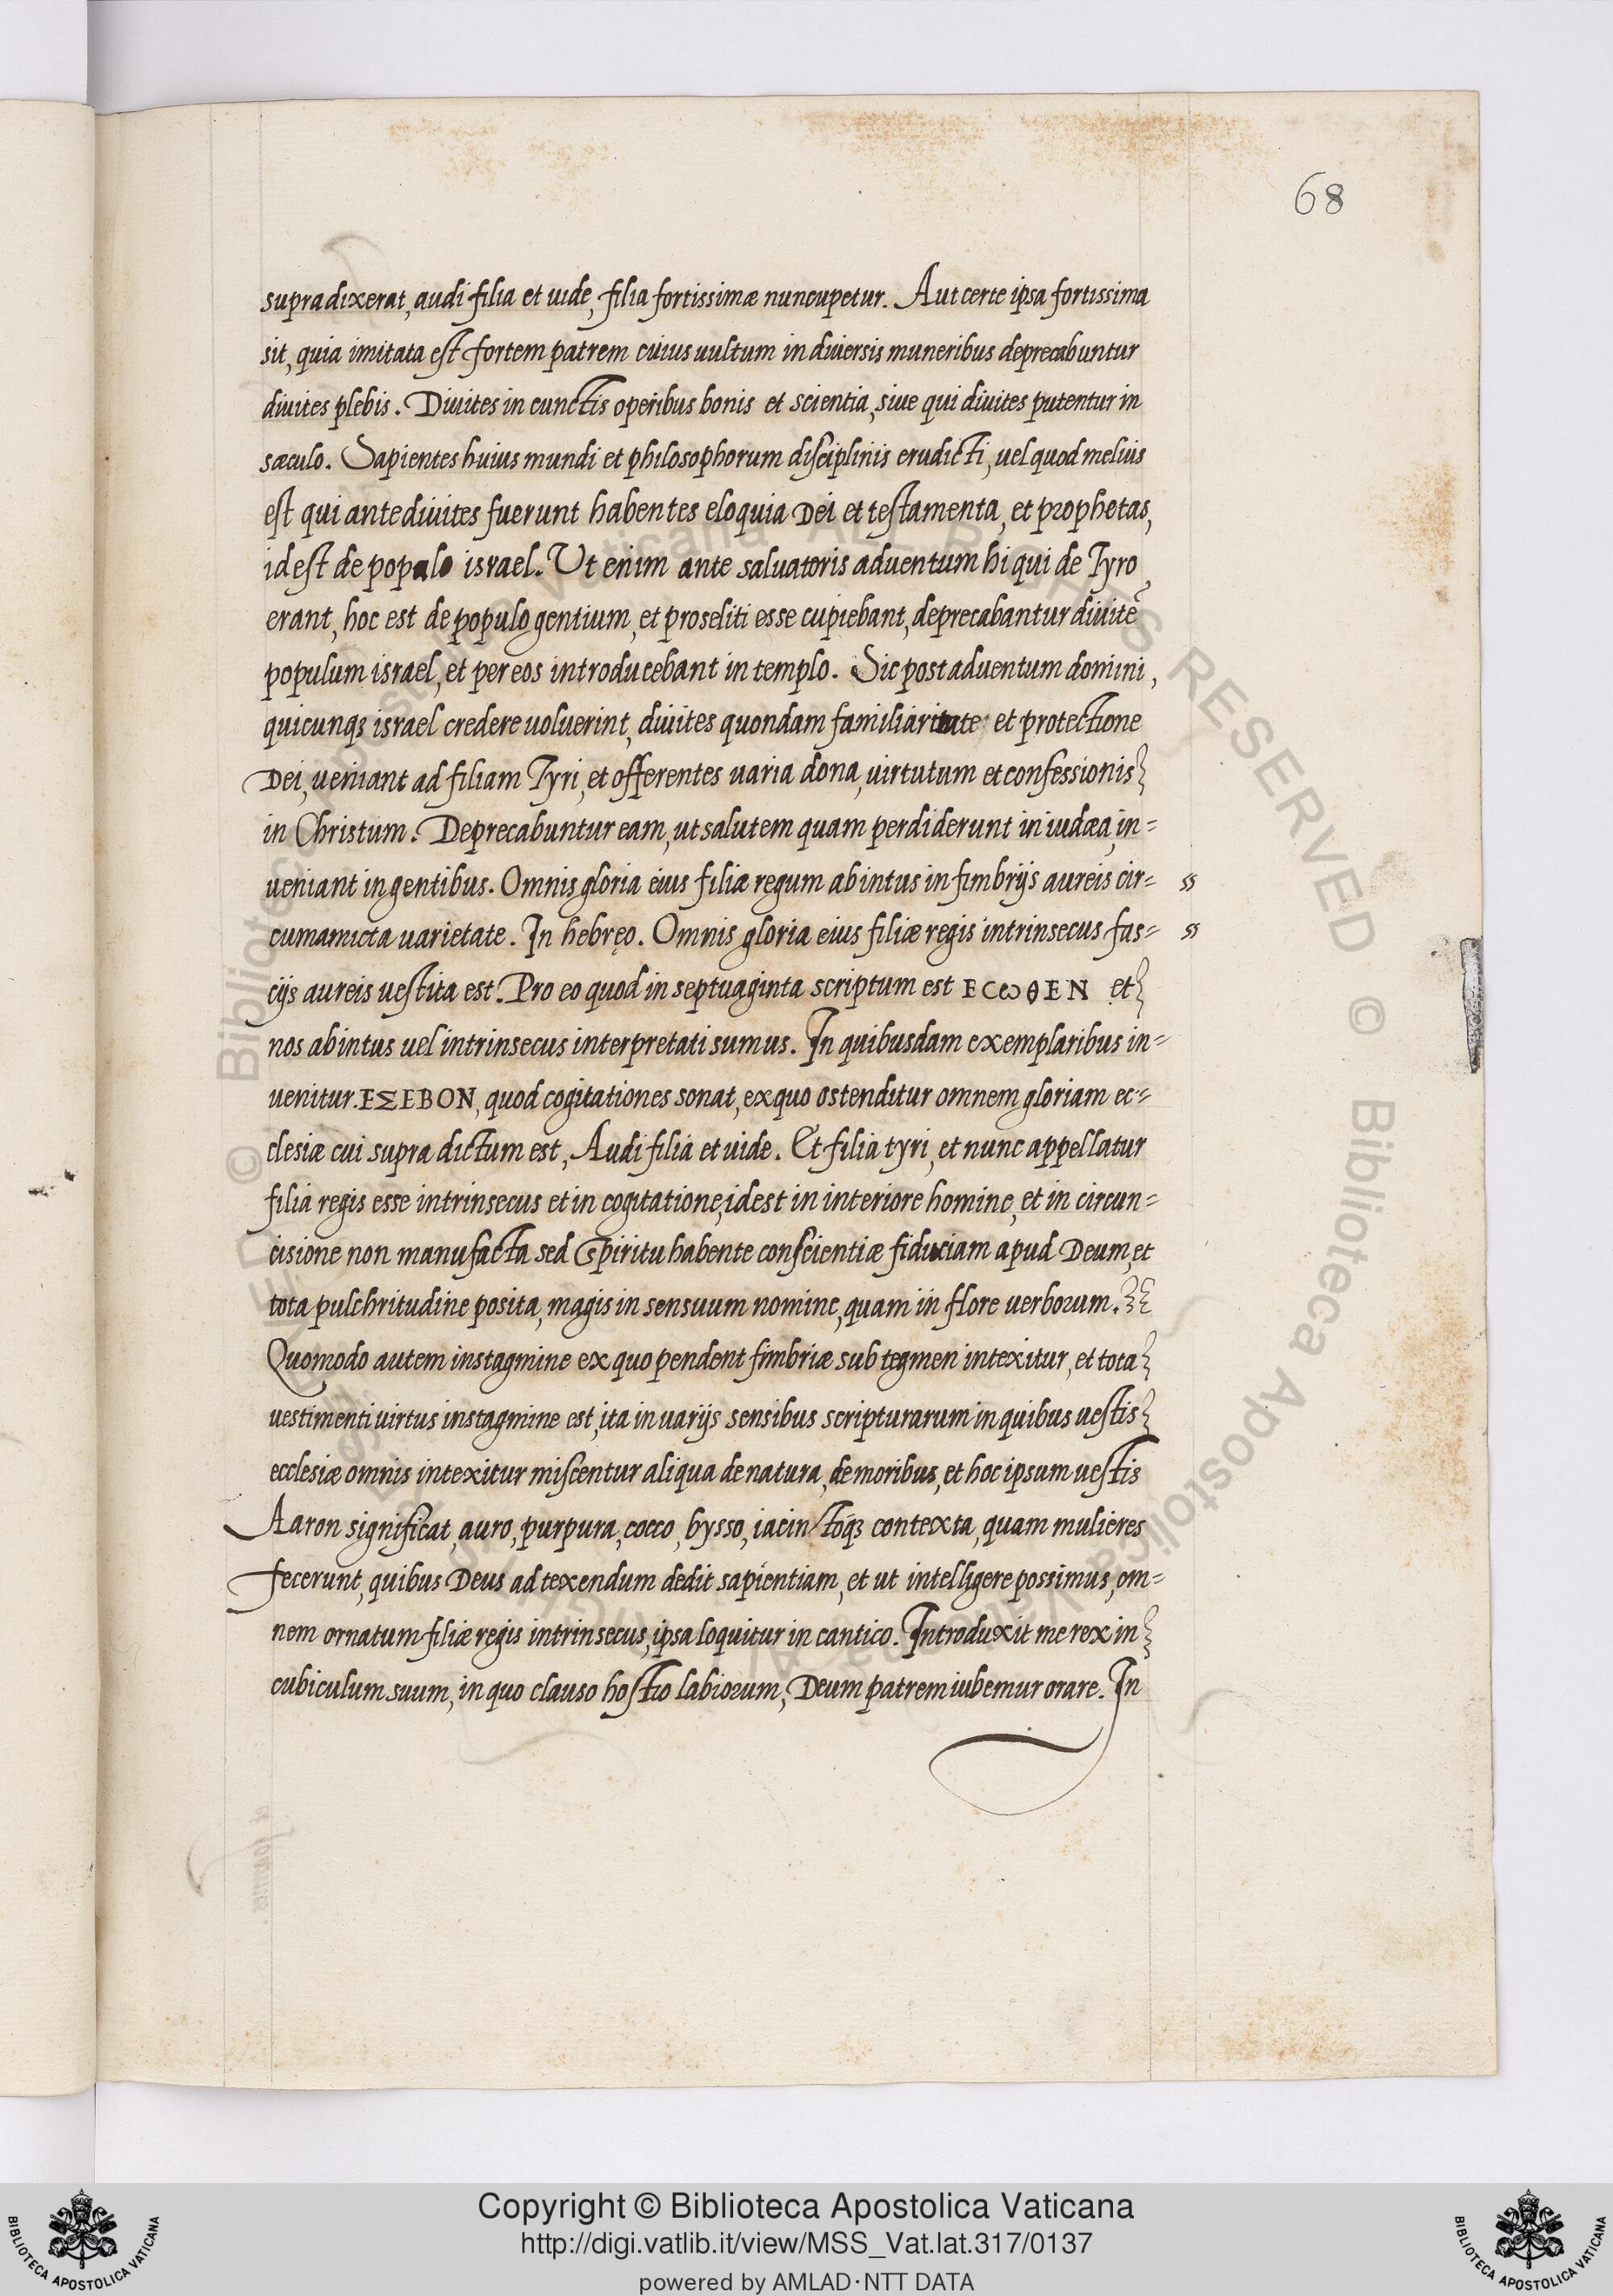 68
supradixerat, audi filia et uide, filia fortissimæ nuncupetur. Aut certe ipsa fortissima
sit, quia imitata est fortem patrem cuius uultum in diuersis muneribus deprecabuntur
diuites plebis. Diuites in cunctis operibus bonis et scientia, siue qui diuites putentur in
sæculo. Sapientes huius mundi et philosophorum disciplinis erudicti, uel quod melius
est qui ante diuites fuerunt habentes eloquia Dei et testamenta, et prophetas,
id est de populo israel. Ut enim ante saluatoris aduentum hi qui de Tyro
erant, hoc est de populo gentium, et proseliti esse cupiebant, deprecabantur diuitẽ
populum israel, et per eos introducebant in templo. Sic post aduentum domini,
quicunqꝫ israel credere uoluerint, diuites quondam familiaritate et protectione
Dei, ueniant ad filiam Tyri, et offerentes uaria dona, uirtutum et confessionis
in Christum. Deprecabuntur eam, ut salutem quam perdiderunt in iudæa, in=
ueniant in gentibus. Omnis gloria eius filiæ regum ab intus in fimbrijs aureis cir= ss
cumamicta uarietate. In hebręo. Omnis gloria eius filiæ regis intrinsecus fas= ss
cijs aureis uestita est. Pro eo quod in septuaginta scriptum est ΕCωθΕΝ et
nos ab intus uel intrinsecus interpretati sumus. In quibusdam exemplaribus in=
uenitur. ΕΣΕΒΟΝ, quod cogitationes sonat, ex quo ostenditur omnem gloriam ec=
clesiæ cui supra dictum est, Audi filia et uide. Et filia tyri, et nunc appellatur
filia regis esse intrinsecus et in cogitatione, id est in interiore homine, et in circun=
cisione non manufacta sed spiritu habente conscientiæ fiduciam apud Deum, et
tota pulchritudine posita, magis in sensuum nomine, quam in flore uerborum.
Quomodo autem instagmine ex quo pendent fimbriæ sub tegmen intexitur, et tota
uestimenti uirtus instagmine est, ita in uarijs sensibus scripturarum in quibus uestis
ecclesiæ omnis intexitur miscentur aliqua de natura, de moribus, et hoc ipsum uestis
Aaron significat, auro, purpura, cocco, bysso, iacintoqꝫ contexta, quam mulieres
fecerunt, quibus Deus ad texendum dedit sapientiam, et ut intelligere possimus, om=
nem ornatum filiæ regis intrinsecus, ipsa loquitur in cantico. Introduxit me rex in
cubiculum suum, in quo clauso hostio labiorum, Deum patrem iubemur orare. In
© Biblioteca Apostolica Vaticana ALL RIGHTS RESERVED © Biblioteca Apostolica Vaticana ALL RIGHTS RESERVED
Copyright © Biblioteca Apostolica Vaticana
http://digi.vatlib.it/view/MSS_Vat.lat.317/0137
powered by AMLAD·NTT DATA
BIBLIOTECA APOSTOLICA VATICANA
BIBLIOTECA APOSTOLICA VATICANA